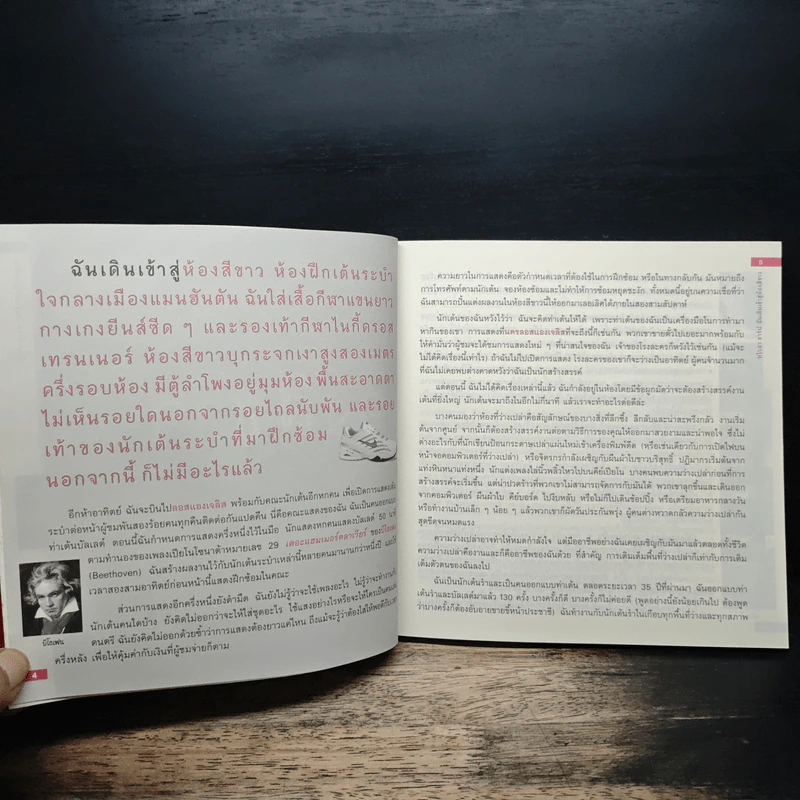 ฉันเดินเข้าสู่ห้องสีขาว ห้องฝึกเต้นระบำ
ใจกลางเมืองแมนฮันตัน ฉันใส่เสื้อกีฬาแขนยาว
กางเกงยีนส์ซีด ๆ และรองเท้ากีฬาไนกี้ครอส
เทรนเนอร์ ห้องสีขาวบุกระจกเงาสูงสองเมตร
ครึ่งรอบห้อง มีตู้ลำโพงอยู่มุมห้อง พื้นสะอาดตา
ไม่เห็นรอยใดนอกจากรอยไถลนับพัน และรอย
เท้าของนักเต้นระบำที่มาฝึกซ้อม
นอกจากนี้ ก็ไม่มีอะไรแล้ว
อีกห้าอาทิตย์ ฉันจะบินไปลอสแองเจลิส พร้อมกับคณะนักเต้นอีกหกคน เพื่อเปิดการแสดงเต้น
ระบำต่อหน้าผู้ชมพันสองร้อยคนทุกคืนติดต่อกันแปดคืน นี่คือคณะแสดงของฉัน ฉันเป็นคนออกแบบ
ท่าเต้นบัลเลต์ ตอนนี้ฉันกำหนดการแสดงครึ่งหนึ่งไว้ในมือ นักแสดงหกคนแสดงบัลเลต์ 50 นาที
ตามทำนองของเพลงเปียโนโซนาต้าหมายเลข 29 เดอะแฮมเมอร์คลาเวียร์ ของบีโธเฟน
(Beethoven) ฉันสร้างผลงานนี้ไว้กับนักระบำเหล่านี้หลายคนมานานกว่าหนึ่งปี และใช้
เวลาสองสามอาทิตย์ก่อนหน้านี้แสดงฝึกซ้อมในคณะ
ส่วนการแสดงอีกครึ่งหนึ่งยังดำมืด ฉันยังไม่รู้ว่าจะใช้เพลงอะไร ไม่รู้ว่าจะทำงานกับ
นักเต้นคนใดบ้าง ยังคิดไม่ออกว่าจะให้ใส่ชุดอะไร ใช้แสงอย่างไรหรือจะให้ใครเป็นคนเล่น
ดนตรี ฉันยังคิดไม่ออกด้วยซ้ำว่าการแสดงต้องยาวแค่ไหน ถึงแม้จะรู้ว่าต้องใส่ให้พอดีกับเวลา
ครึ่งหลัง เพื่อให้คุ้มค่ากับเงินที่ผู้ชมจ่ายก็ตาม
บีโธเฟน
4
5
ความยาวในการแสดงคือตัวกำหนดเวลาที่ต้องใช้ในการฝึกซ้อม หรือในทางกลับกัน มันหมายถึง
การโทรศัพท์ตามนักเต้น จองห้องซ้อมและไม่ทำให้การซ้อมหยุดชะงัก ทั้งหมดนี้อยู่บนความเชื่อที่ว่า
ฉันสามารถปั้นแต่งผลงานในห้องสีขาวนี้ให้ออกมาเลอเลิศได้ภายในสองสามสัปดาห์
นักเต้นของฉันหวังไว้ว่า ฉันจะคิดท่าเต้นให้ได้ เพราะท่าเต้นของฉันเป็นเครื่องมือในการทำมา
หากินของเขา การแสดงที่นครลอสแองเจลิสที่จะถึงนี้ก็เช่นกัน พวกเขาขายตั๋วไปเยอะมากพร้อมกับ
ให้คำมั่นว่าผู้ชมจะได้ชมการแสดงใหม่ ๆ ที่น่าสนใจของฉัน เจ้าของโรงละครก็หวังไว้เช่นกัน (แม้จะ
ไม่ได้คิดเรื่องนี้เท่าไร) ถ้าฉันไม่ไปเปิดการแสดง โรงละครของเขาก็จะว่างเป็นอาทิตย์ ผู้คนจำนวนมาก
ที่ฉันไม่เคยพบต่างคาดหวังว่าฉันเป็นนักสร้างสรรค์
แต่ตอนนี้ ฉันไม่ได้คิดเรื่องเหล่านี้แล้ว ฉันกำลังอยู่ในห้องโดยมีข้อผูกมัดว่าจะต้องสร้างสรรค์งาน
เต้นที่ยิ่งใหญ่ นักเต้นจะมาถึงในอีกไม่กี่นาที แล้วเราจะทำอะไรต่อดีล่ะ
บางคนมองว่าห้องที่ว่างเปล่าคือสัญลักษณ์ของบางสิ่งที่ลึกซึ้ง ลึกลับและน่าสะพรึงกลัว งานเริ่ม
ต้นจากศูนย์ จากนั้นก็ต้องสร้างสรรค์งานต่อตามวิธีการของคุณให้ออกมาสวยงามและน่าพอใจ ซึ่งไม่
ต่างอะไรกับที่นักเขียนป้อนกระดาษเปล่าแผ่นใหม่เข้าเครื่องพิมพ์ดีด (หรือเช่นเดียวกับการเปิดไฟบน
หน้าจอคอมพิวเตอร์ที่ว่างเปล่า) หรือจิตรกรกำลังเผชิญกับผืนผ้าใบขาวบริสุทธิ์ ปฏิมากรเริ่มต้นจาก
แท่งหินหนาแท่งหนึ่ง นักแต่งเพลงไล่นิ้วพลิ้วไหวไปบนคีย์เปียโน บางคนพบความว่างเปล่าก่อนที่การ
สร้างสรรค์จะเริ่มต้น แต่น่าปวดร้าวที่พวกเขาไม่สามารถจัดการกับมันได้ พวกเขาลุกขึ้นและเดินออก
จากคอมพิวเตอร์ ผืนผ้าใบ คีย์บอร์ด ไปงีบหลับ หรือไม่ก็ไปเดินช้อปปิ้ง หรือเตรียมอาหารกลางวัน
หรือทำงานบ้านเล็ก ๆ น้อย ๆ แล้วพวกเขาก็ผัดวันประกันพรุ่ง ผู้คนต่างหวาดกลัวความว่างเปล่ากัน
สุดขีดจนหมดแรง
ความว่างเปล่าอาจทำให้หมดกำลังใจ แต่มืออาชีพอย่างฉันเคยเผชิญกับมันมาแล้วตลอดทั้งชีวิต
ความว่างเปล่าคืองานและก็คืออาชีพของฉันด้วย ที่สำคัญ การเติมเต็มพื้นที่ว่างเปล่าก็เท่ากับการเติม
เต็มตัวตนของฉันลงไป
ฉันเป็นนักเต้นรำและเป็นคนออกแบบท่าเต้น ตลอดระยะเวลา 35 ปีที่ผ่านมา ฉันออกแบบท่า
เต้นรำและบัลเลต์มาแล้ว 130 ครั้ง บางครั้งก็ดี บางครั้งก็ไม่ค่อยดี (พูดอย่างนี้ยังน้อยเกินไป ต้องพูด
ว่าบางครั้งก็ต้องอับอายขายขี้หน้าประชาชี) ฉันทำงานกับนักเต้นรำในเกือบทุกพื้นที่ว่างและทุกสภาพ